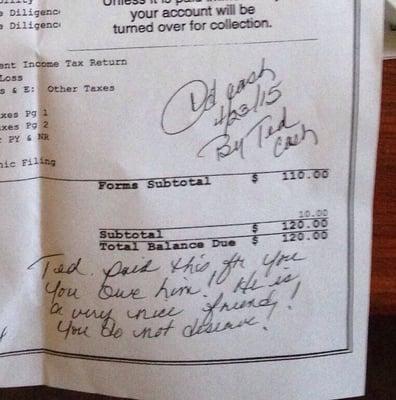 e Diligence
e Diligence
Unless it is paid
your account will be
turned over for collection.
ent Income Tax Return
Loss
s & E: Other Taxes
Pd cash
4/23/15
By Ted
cash
axes Pg 1
axes Pg 2
PY & NR
nic Filing
Forms Subtotal $ 110.00
10.00
Subtotal $ 120.00
Total Balance Due $ 120.00
Ted paid this, for you
You owe him! He is
a very nice friend!
You do not deserve!